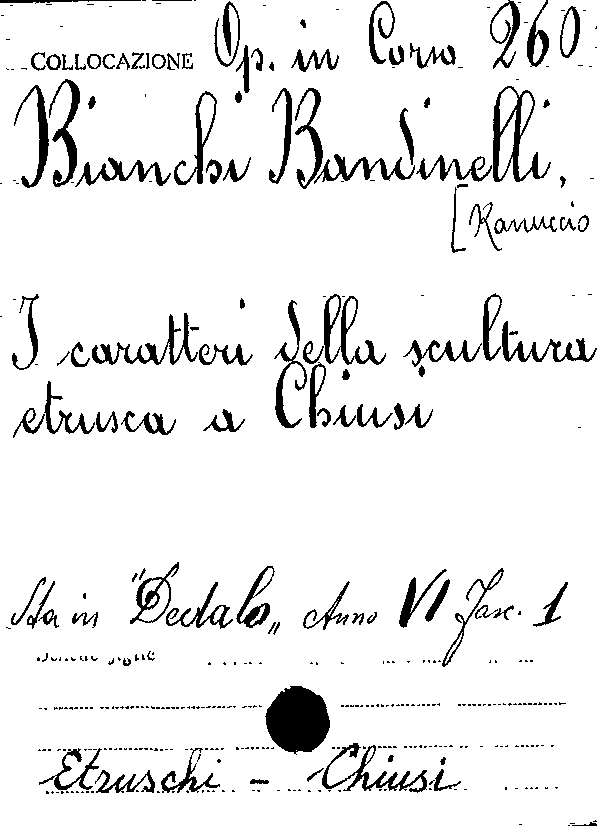 COLLOCAZIONE Op. in Corso 260
Bianchi Bandinelli,
[Ranuccio
I caratteri della scultura
etrusca a Chiusi
Sta in "Dedalo„ Anno VI Fasc. 1
Etruschi - Chiusi